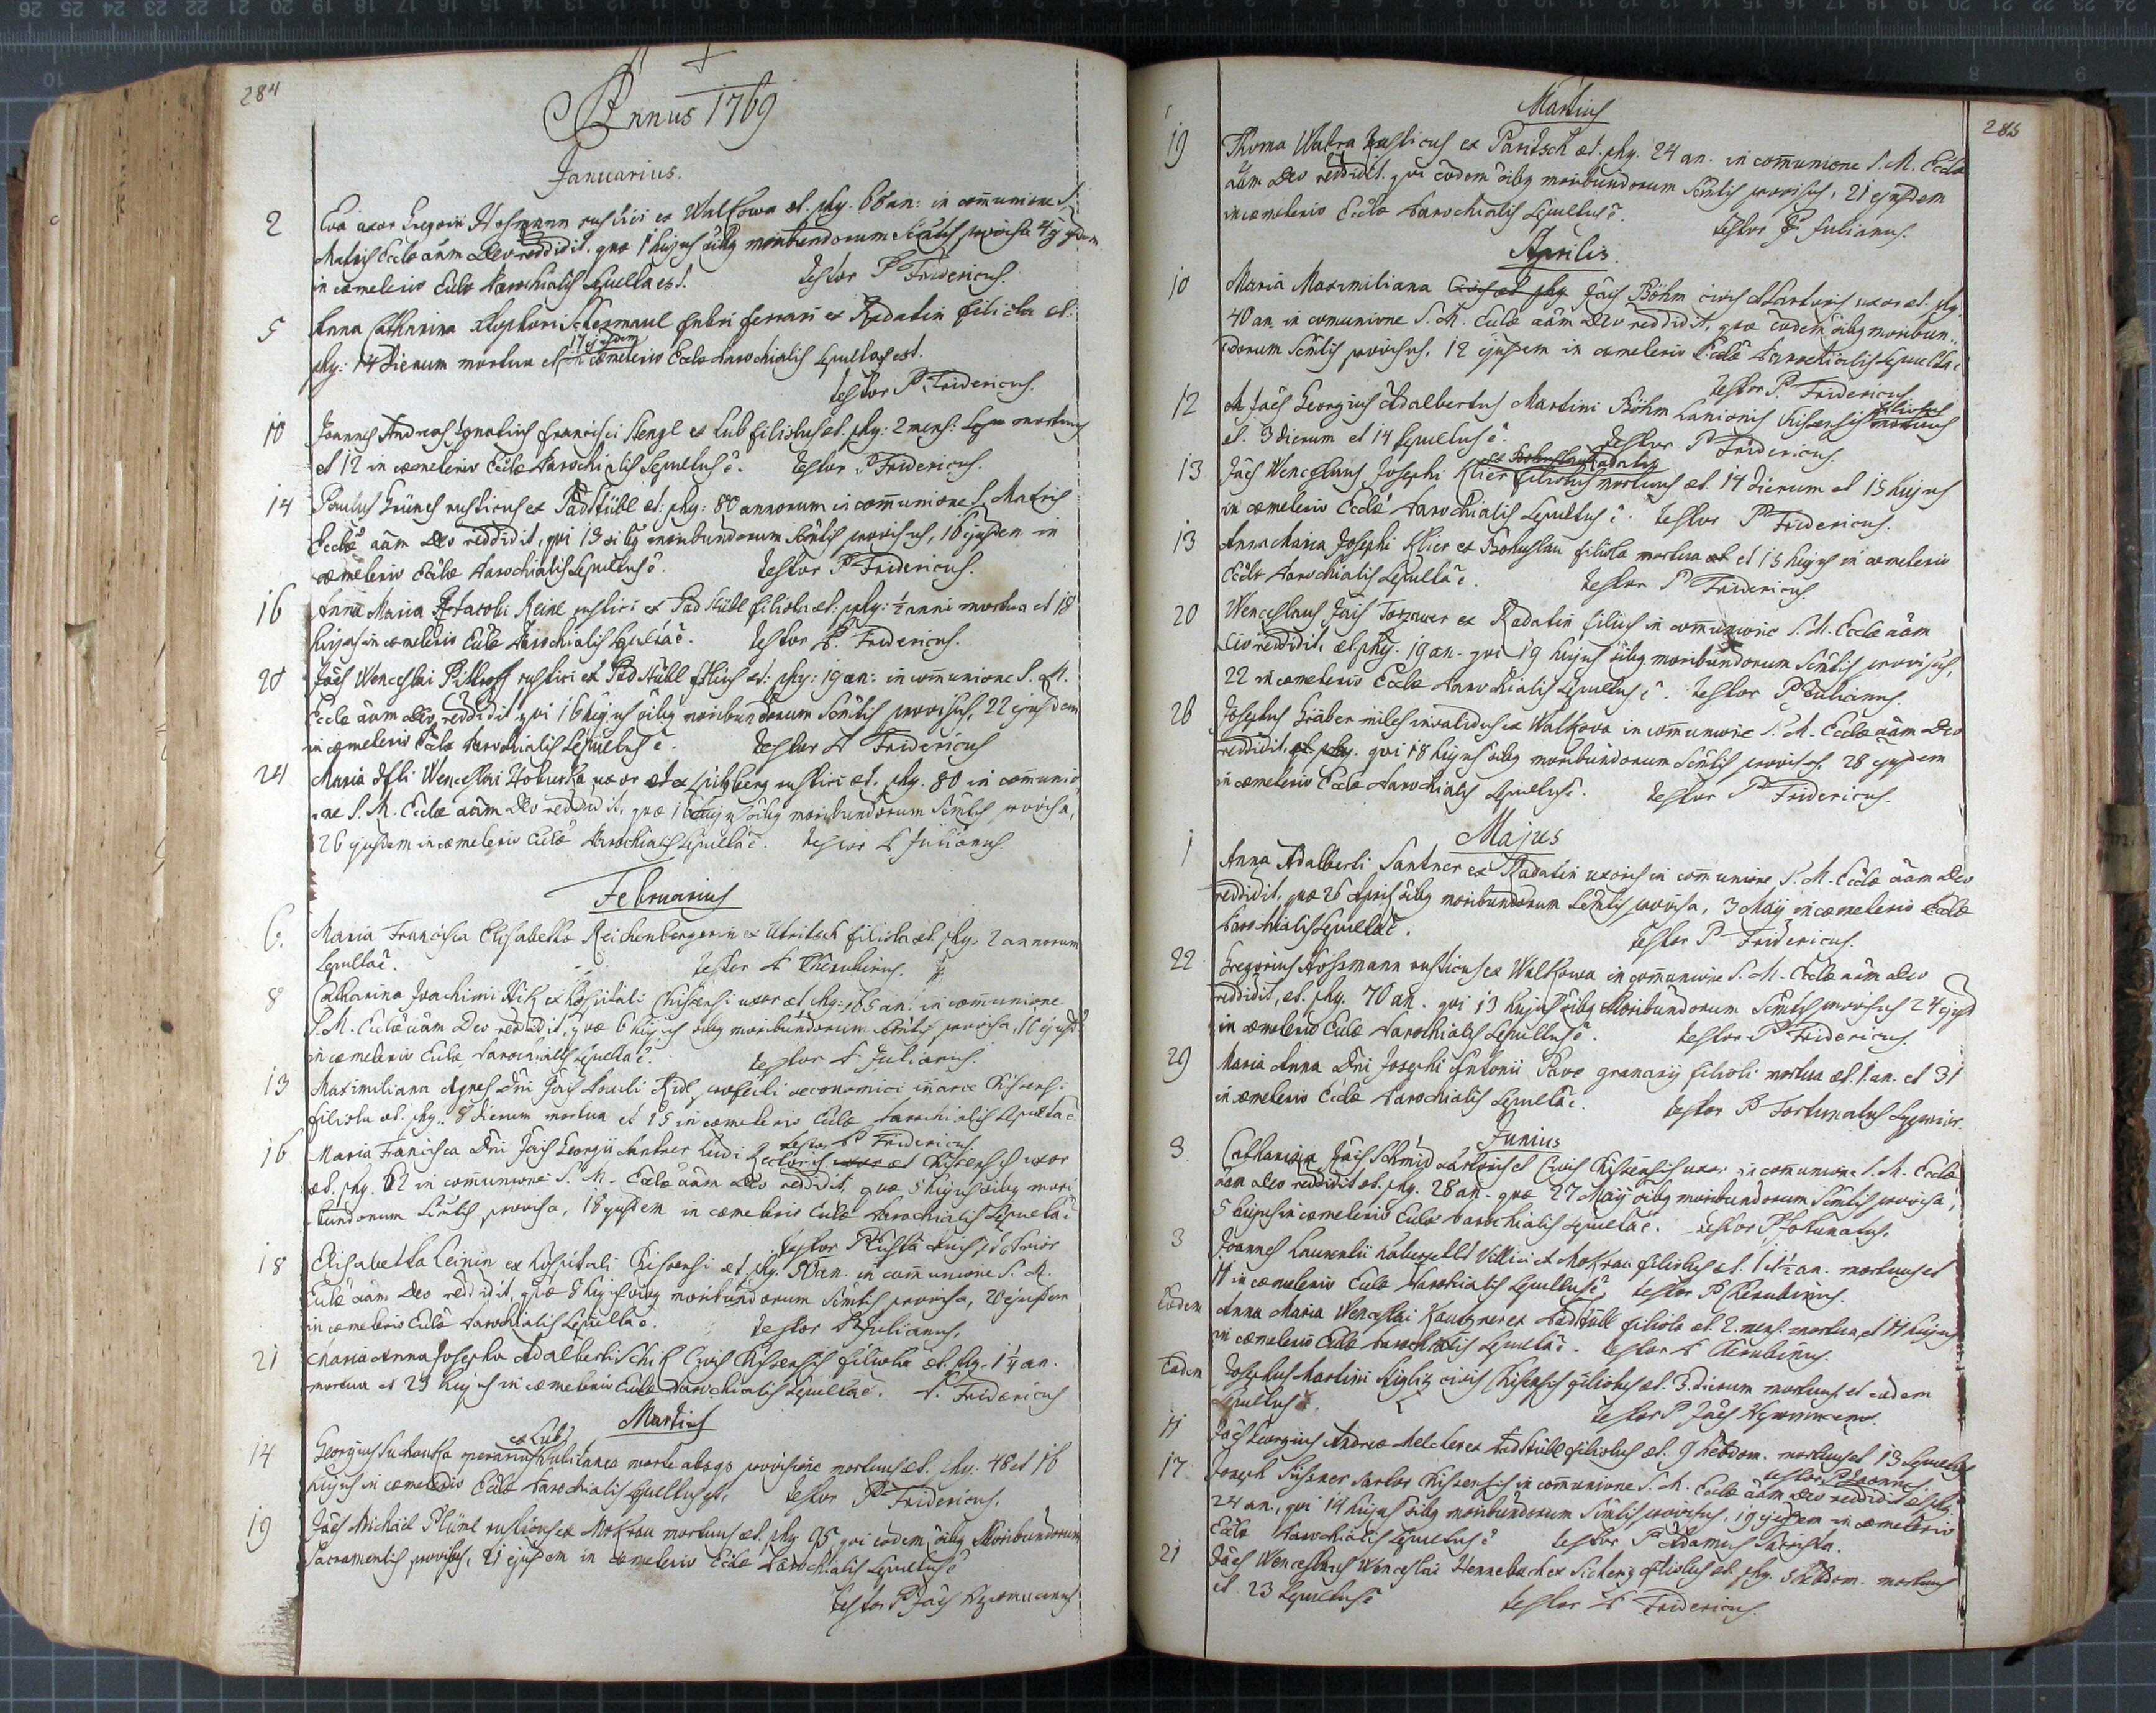 284
Annus 1769
Januarius.
2 Eva uxor Gregorii Hosmann rustici ex Walkowa æt. phy. 66 an: in com̄unione S.
Matris Eccl̄æ aām Deo reddidit, quæ 1 hujus oībq moribundorum Sc̄ātis provisa 4
in cæmeterio Eccl̄æ Parochialis Sepulta est. Testor P. Fridericus.
5 Anna Catharina fabri ferrarii ex Radatin filiola æt:
17 ejusdem
phy: 14 dierum mortua et in cæmeterio Eccl̄æ Parochialis Sepulta est.
Testor P Fridericus.
10 Joannes Andreas Ignatius Francisci Stengl ex Lub filiolus æt. phy: 2 mens: mortuus
et 12 in cæmeterio Eccl̄æ Parochialis Sepultus ē. Testor P Fridericus.
14 Paulus Grünes rusticus ex Padstübl æt: phy: 80 annorum in com̄unione S. Matris
Eccl̄æ aām Deo reddidit, qui 13 oībq moribundorum Sc̄ātis provisus, 16 ejusdem in
cæmeterio Eccl̄æ Parochialis Sepultus ē. Testor P Fridericus.
16 Anna Maria Jacobi Reinl rustici ex Padstübl filiola æt: phy: ½ anni mortua et 18
hujus in cæmeterio Eccl̄æ Parochialis Sepulta ē. Testor P. Fridericus.
20 Jōēs Wenceslai Pittroff rustici ex Padstübl filius æt: phy: 19 an: in com̄unione S. M.
Eccl̄æ aām Deo reddidit qui 16 hujus oībq moribundorum Sc̄ātis provisus, 22 ejusdem
in cæmeterio Eccl̄æ Parochialis Sepultus ē. Testor P Fridericus
24 Maria Wenceslai uxor rustici æt. phy. 80 in com̄unio
ne S. M. Eccl̄æ aām Deo reddidit, quæ 16 hujus oībq moribundorum Sc̄ātis provisa,
26 ejusdem in cæmeterio Eccl̄æ Parochialis Sepulta ē. Testor P Julianus.
Februarius
6. Maria Francisca Elisabetha Reichenbergerin ex Utritsch filiola æt. phy. 2 annorum
Sepulta ē. Testor P Cherubinus.
8 Catharina Joachimi ex Hospitali Chisensi uxor æt phy: 65 an: in com̄unione
S. M. Eccl̄æ aām Deo reddidit, quæ 6 hujus oībq moribundorum Sc̄ātis provisa, 10 ejusd
in cæmeterio Eccl̄æ Parochialis Sepulta ē. Testor P. Julianus.
13 Maximiliana Agnes Dn̄i Jōīs Pauli Ridl œconomici in arce Chisensi
filiola æt. phy. 8 dierum mortua et 15 in cæmeterio Eccl̄æ Parochialis Sepulta ē
Testor P Fridericus
16 Maria Francisca Dn̄i Jōīs Georgii Santner Ludi Rectoris Chisensis uxor
æt. phy. 62 in com̄unione S. M. Eccl̄æ aām Deo reddidit, quæ 5 hujus oībq mori
bundorum Sc̄ātis provisa, 18 ejusdem in cæmeterio Eccl̄æ Parochialis Sepulta ē
Testor P Prior
18 Elisabetha Leinin ex Hospitali Chisensi æt. phy. 50 an. in com̄unione S. M.
Eccl̄æ aām Deo reddidit, quæ 8 hujus oībq moribundorum Sc̄ātis provisa, 20 ejusdem
in cæmeterio Eccl̄æ Parochialis Sepulta ē. Testor P Julianus.
21 Maria Anna Josepha Adalberti Schik Civis Chisensis filiola æt. phy. 1¼ an.
mortua et 23 hujus in cæmeterio Eccl̄æ Parochialis Sepulta ē. P. Fridericus
Martius
ex Lub
14 Georgius Suchanka operarius Subitanea morte absqs provisione mortuus æt. phy: 48 et 16
hujus in cæmeterio Eccl̄æ Parochialis Sepultus est, Testor P Fridericus.
19 Jōēs Michael Plüml rusticus ex Mokrau mortuus æt. phy 95 qui eodem oībq Moribundorum
Sacramentis provisus, 21 ejusdem in cæmeterio Eccl̄æ Parochialis Sepultus ē
Testor P Jōēs Nepomucenus
285
Martius
19 Thoma Watra Rusticus ex Paritsch æt. phy. 24 an. in com̄unione S. M. Eccl̄æ
aām Deo reddidit. qui eodem oībq moribundorum Sc̄ātis provisus, 21 ejusdem
in cæmeterio Eccl̄æ Parochialis Sepultus ē. Testor P. Julianus.
Aprilis.
10 Maria Maximiliana Civis æt phy Jōīs Böhm civis et Sartoris uxor æt. phy.
40 an. in com̄unione S. M. Eccl̄æ aām Deo reddidit, quæ eodem oībq moribun-
dorum Sc̄ātis provisus, 12 ejusdem in cæmeterio Eccl̄æ Parochialis Sepulta ē
Testor P. Fridericus
12 Jōēs Georgius Adalbertus Martini Böhm Lanionis Chisensis filiolus mortuus
æt. 3 dierum et 14 Sepultus ē. Testor P Fridericus.
13 Jōēs Wenceslaus Josephi Klier filiolus mortuus æt. 14 dierum et 15 hujus
in cæmeterio Eccl̄æ Parochialis Sepultus ē. Testor P Fridericus.
13 Anna Maria Josephi Klier ex Bohuslau filiola mortua et 15 hujus in cæmeterio
Eccl̄æ Parochialis Sepulta ē. Testor P Fridericus.
20 Wenceslaus Jōīs ex Radatin filius in com̄unione S. M. Eccl̄æ aām
Deo reddidit, æt phy. 19 an. qui 19 hujus oībq moribundorum Sc̄ātis provisus,
22 in cæmeterio Eccl̄æ Parochialis Sepultus ē. Testor P Julianus.
26 Josephus Gräber miles invalidus ex Walkova in com̄unione S. M. Eccl̄æ aām Deo
reddidit, æt phy. qui 18 hujus oībq moribundorum Sc̄ātis provisus, 28 ejusdem
in cæmeterio Eccl̄æ Parochialis Sepultus ē. Testor P Fridericus.
Majus
1 Anna Adalberti Santner ex Radatin uxoris in com̄unione S. M. Eccl̄æ aām Deo
reddidit, quæ 26 Aprilis oībq moribundorum Sc̄ātis provisa, 3 Maij in cæmeterio Eccl̄æ
Parochialis Sepulta ē. Testor P Fridericus.
22 Gregorius Hossmann rusticus ex Walkowa in com̄unione S. M. Eccl̄æ aām Deo
reddidit, æt. phy. 70 an. qui 13 hujus oībq Moribundorum Sc̄ātis provisus 24 ejusd
in cæmeterio Eccl̄æ Parochialis Sepultus ē. Testor P Fridericus.
29 Maria Anna Dn̄i Josephi Antonii Pavo granarij filioli mortua æt. 1. an. et 31
in cæmeterio Eccl̄æ Parochialis Sepulta ē. Testor P Fortunatus
Junius
3 Catharina Jōīs Schmid Sartoris et Civis Chisensis uxor in com̄unione S. M. Eccl̄æ
aām Deo reddidit æt. phy. 28 an. quæ 27 Maij oībq moribundorum Sc̄ātis provisa,
5 hujus in cæmeterio Eccl̄æ Parochialis Sepulta ē. Testor P Fortunatus.
3 Joannes Laurentii Villici ex Mokrau filiolus æt. 1 et ½ an. mortuus et
11 in cæmeterio Eccl̄æ Parochialis Sepultus ē, Testor P Cherubinus.
Eodem Anna Maria Wenceslai ex Padstübl filiola æt. 2. mens. mortua, et 11 hujus
in cæmeterio Eccl̄æ Parochialis Sepulta ē. Testor P Cherubinus.
Eadem Josephus Martini Stigliz civis Chisensis filiolus æt. 3. dierum mortuus, et eodem
Sepultus. Testor P Jōēs
11 Jōēs Georgius Andreæ Melcher ex Padstübl filiolus æt. 9 hebdom. mortuus et 13 Sepultus
Testor P Joannes.
17 Joseph Süssner Sartor Chisensis in com̄unione S. M. Eccl̄æ aām Deo reddidit æt phy.
24 an., qui 14 hujus oībq moribundorum Sc̄ātis provisus, 19 ejusdem in cæmeterio
Eccl̄æ Parochialis Sepultus ē Testor P Adamus
21 Jōēs Wenceslaus Wenceslai Hennebach ex filiolus æt. phy. hebdom. mortuus
et 23 Sepultus ē Testor P Fridericus.